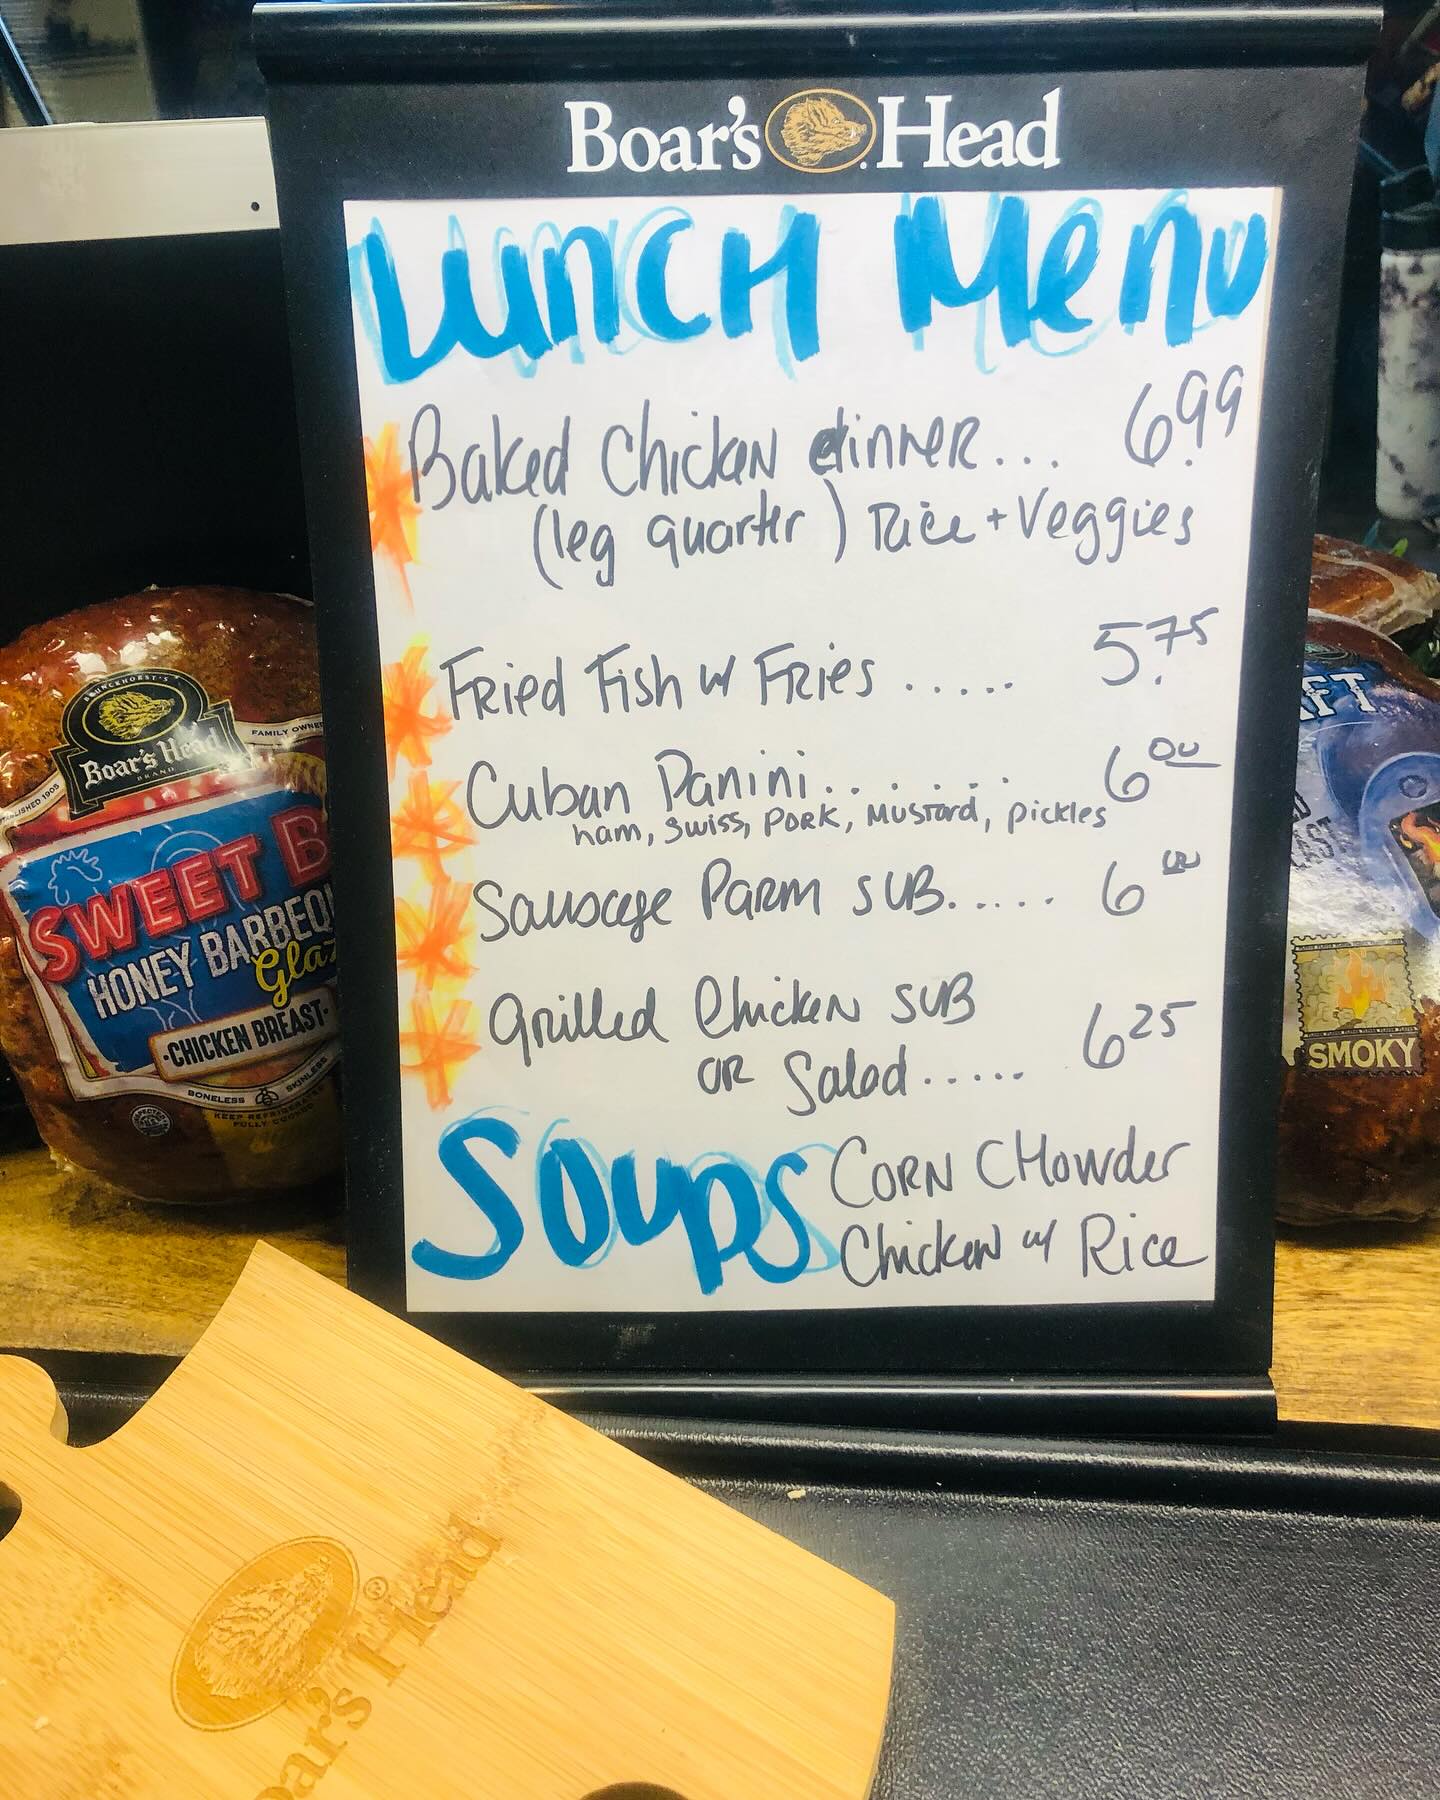 Boar's Head
Lunch Menu
Baked Chicken dinner... 6.99
(leg quarter) Rice + Veggies
Fried Fish w/ Fries ..... 5.75
Cuban Panini........ 6 00
ham, swiss, pork, mustard, pickles
Sausage Parm SUB..... 6 00
Grilled Chicken SUB
OR Salad..... 6 25
Soups Corn Chowder
Chicken w/ Rice
BRUNCKHORST'S
Boar's Head
BRAND
FAMILY OWNED
SWEET B
HONEY BARBEQU
Glaz
CHICKEN BREAST
BONELESS SKINLESS
KEEP REFRIGERATED
FULLY COOKED
AFT
SMOKY
oar's Head